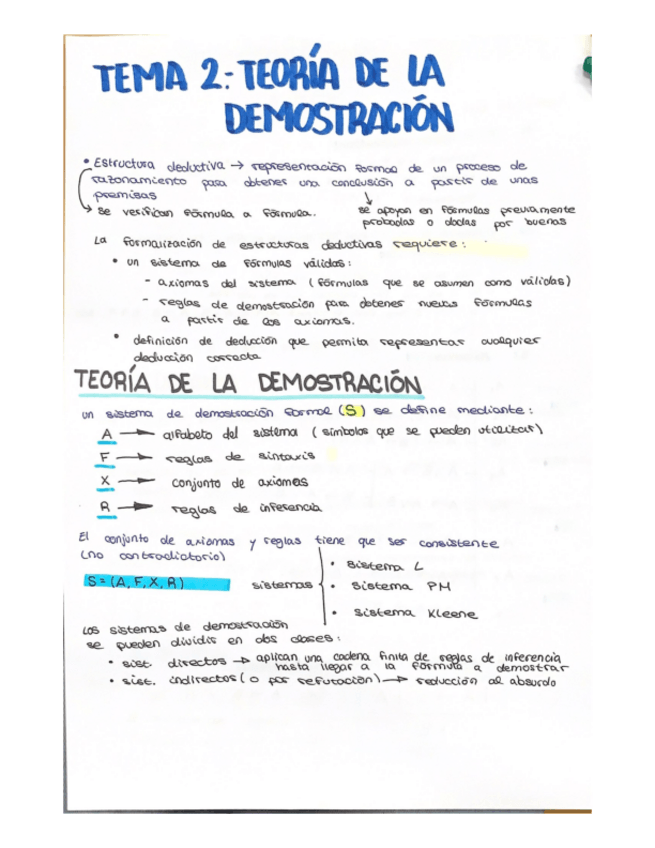 TEMA 2: TEORÍA DE LA
DEMOSTRACIÓN
• Estructura deductiva → representación formal de un proceso de
razonamiento para obtener una conclusión a partir de unas
premisas
→ se verifican fórmula a fórmula.
se apoyan en fórmulas previamente
probadas o dadas por buenas
La formalización de estructuras deductivas requiere:
• un sistema de fórmulas válidas:
- axiomas del sistema (fórmulas que se asumen como válidas)
- reglas de demostración para obtener nuevas fórmulas
a partir de los axiomas.
• definición de deducción que permita representar cualquier
deducción correcta
TEORÍA DE LA DEMOSTRACIÓN
un sistema de demostración formal (S) se define mediante:
A → alfabeto del sistema (símbolos que se pueden utilizar)
F → reglas de sintaxis
X → conjunto de axiomas
R → reglas de inferencia
El conjunto de axiomas y reglas tiene que ser consistente
(no contradictorio)
S = (A, F, X, R)
sistemas
• Sistema L
• Sistema PM
• Sistema Kleene
Los sistemas de demostración
se pueden dividir en dos clases:
• sist. directos → aplican una cadena finita de reglas de inferencia
hasta llegar a la fórmula a demostrar
• sist. indirectos (o por refutación) → reducción al absurdo